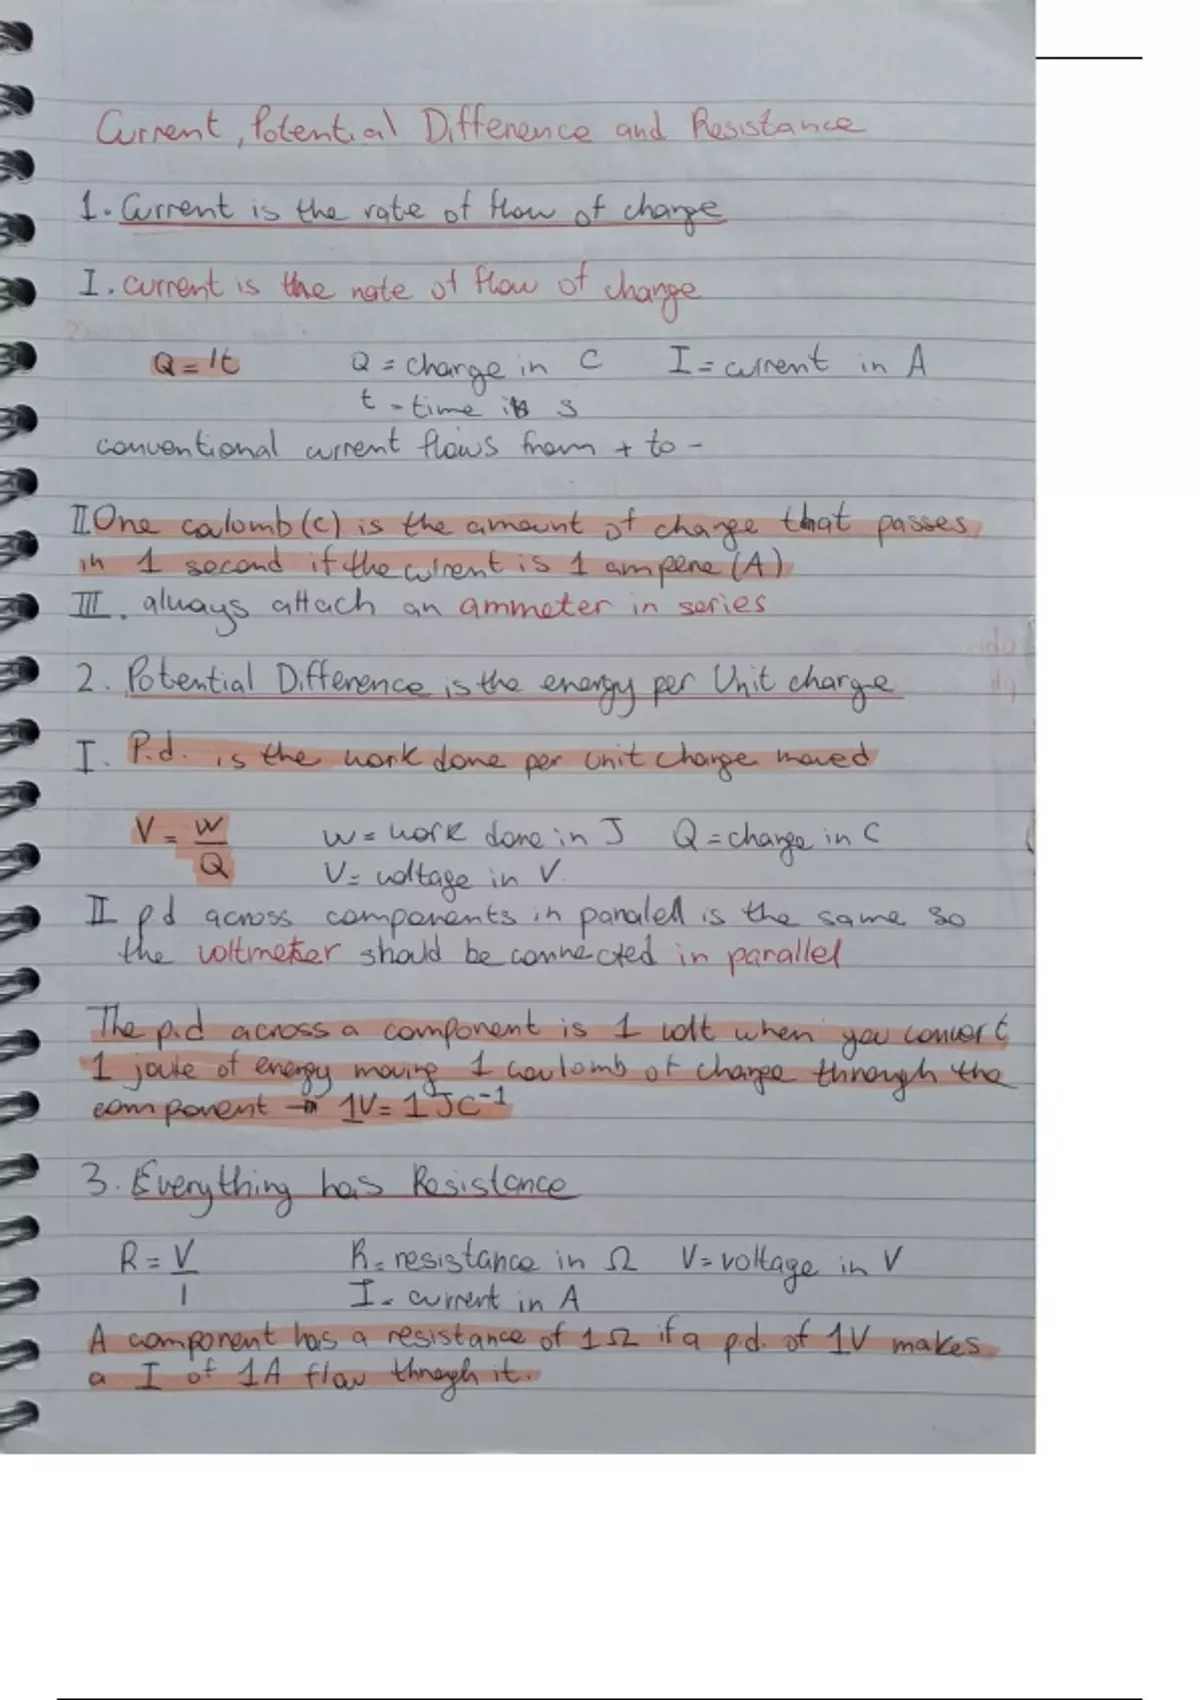 Current, Potential Difference and Resistance
1. Current is the rate of flow of charge
I. current is the rate of flow of charge
Q = It Q = charge in C I = current in A
t = time in s
conventional current flows from + to -
II One coulomb (C) is the amount of charge that passes
in 1 second if the current is 1 ampere (A)
III. always attach an ammeter in series
2. Potential Difference is the energy per Unit charge
I. P.d. is the work done per unit charge moved
V = W/Q W = work done in J Q = charge in C
V = voltage in V.
II p d across components in paralell is the same so
the voltmeter should be connected in parallel
The p.d across a component is 1 volt when you convert
1 joule of energy moving 1 coulomb of charge through the
component → 1V = 1 JC⁻¹
3. Everything has Resistance
R = V/I R = resistance in Ω V = voltage in V
I = current in A
A component has a resistance of 1Ω if a p.d. of 1V makes
a I of 1A flow through it.